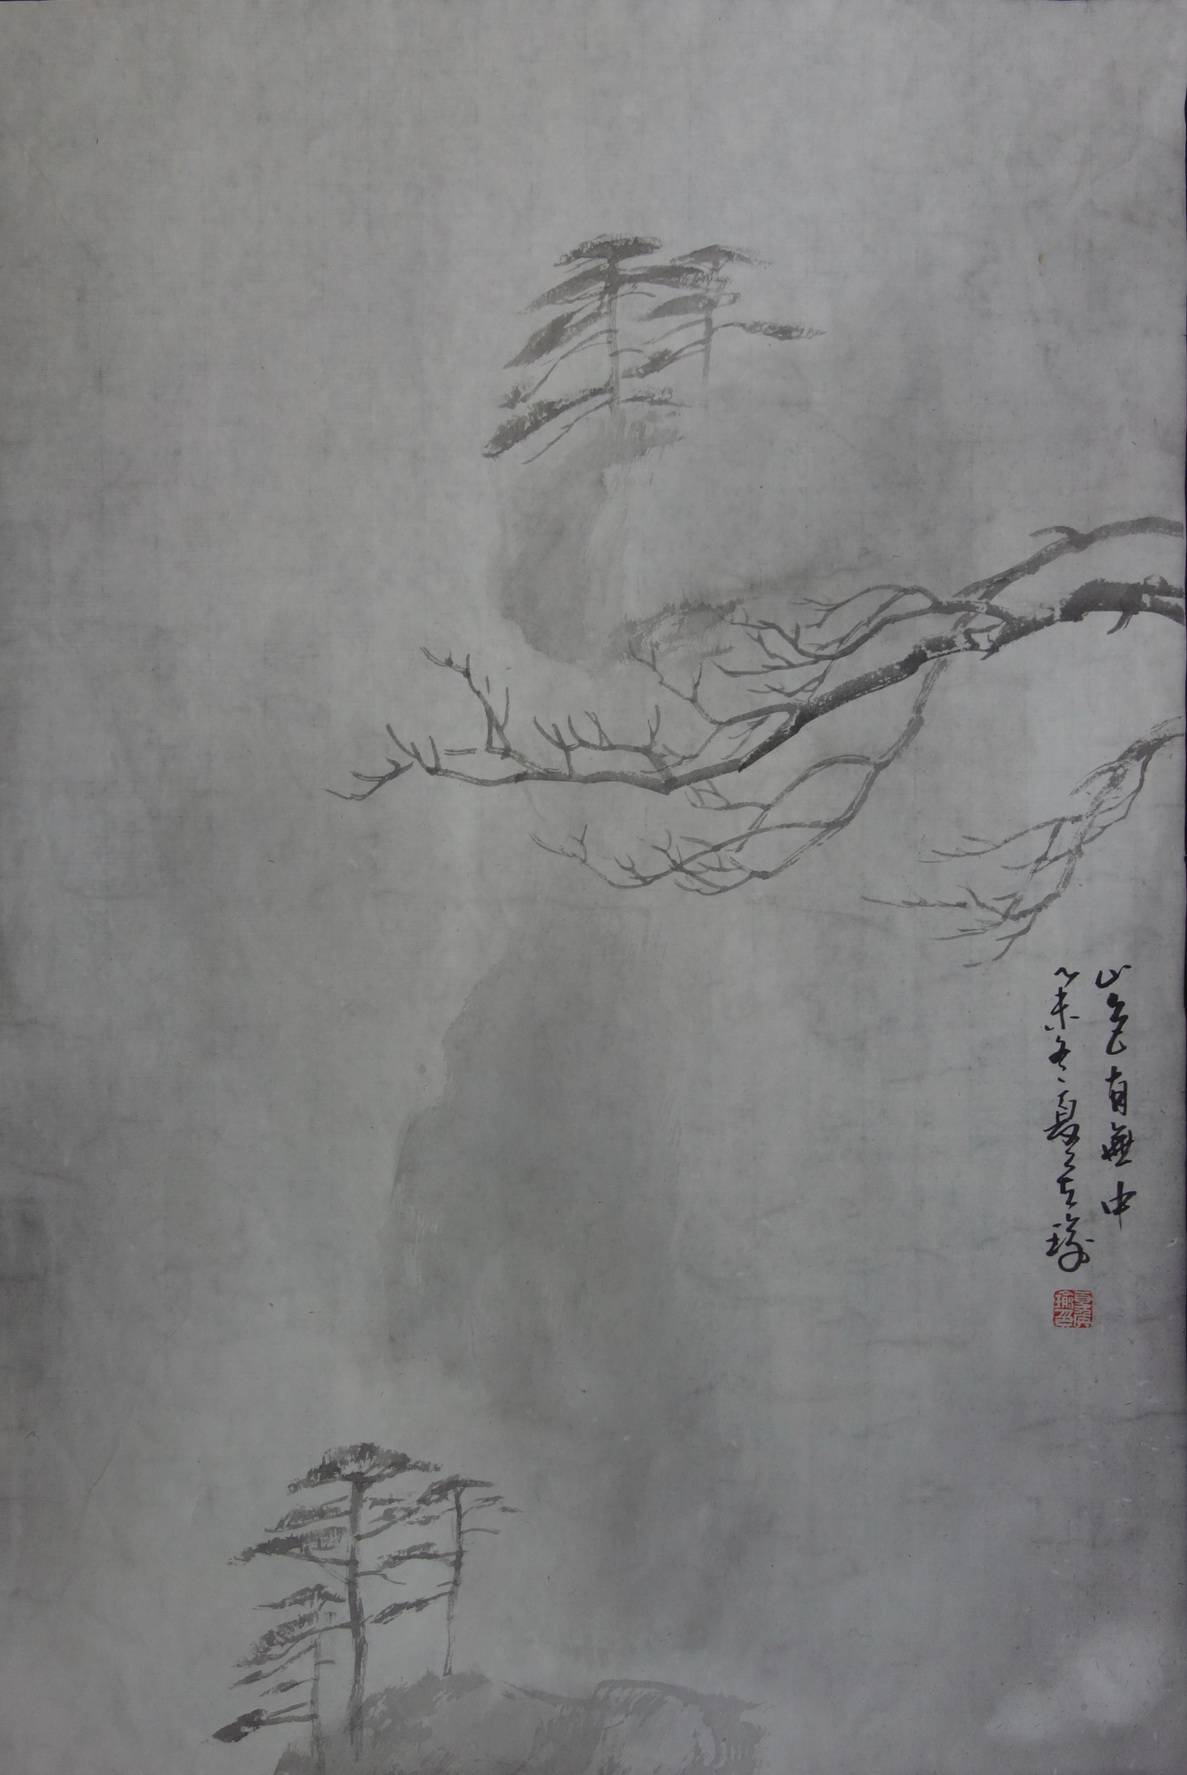 山色有無中
乙未冬夏